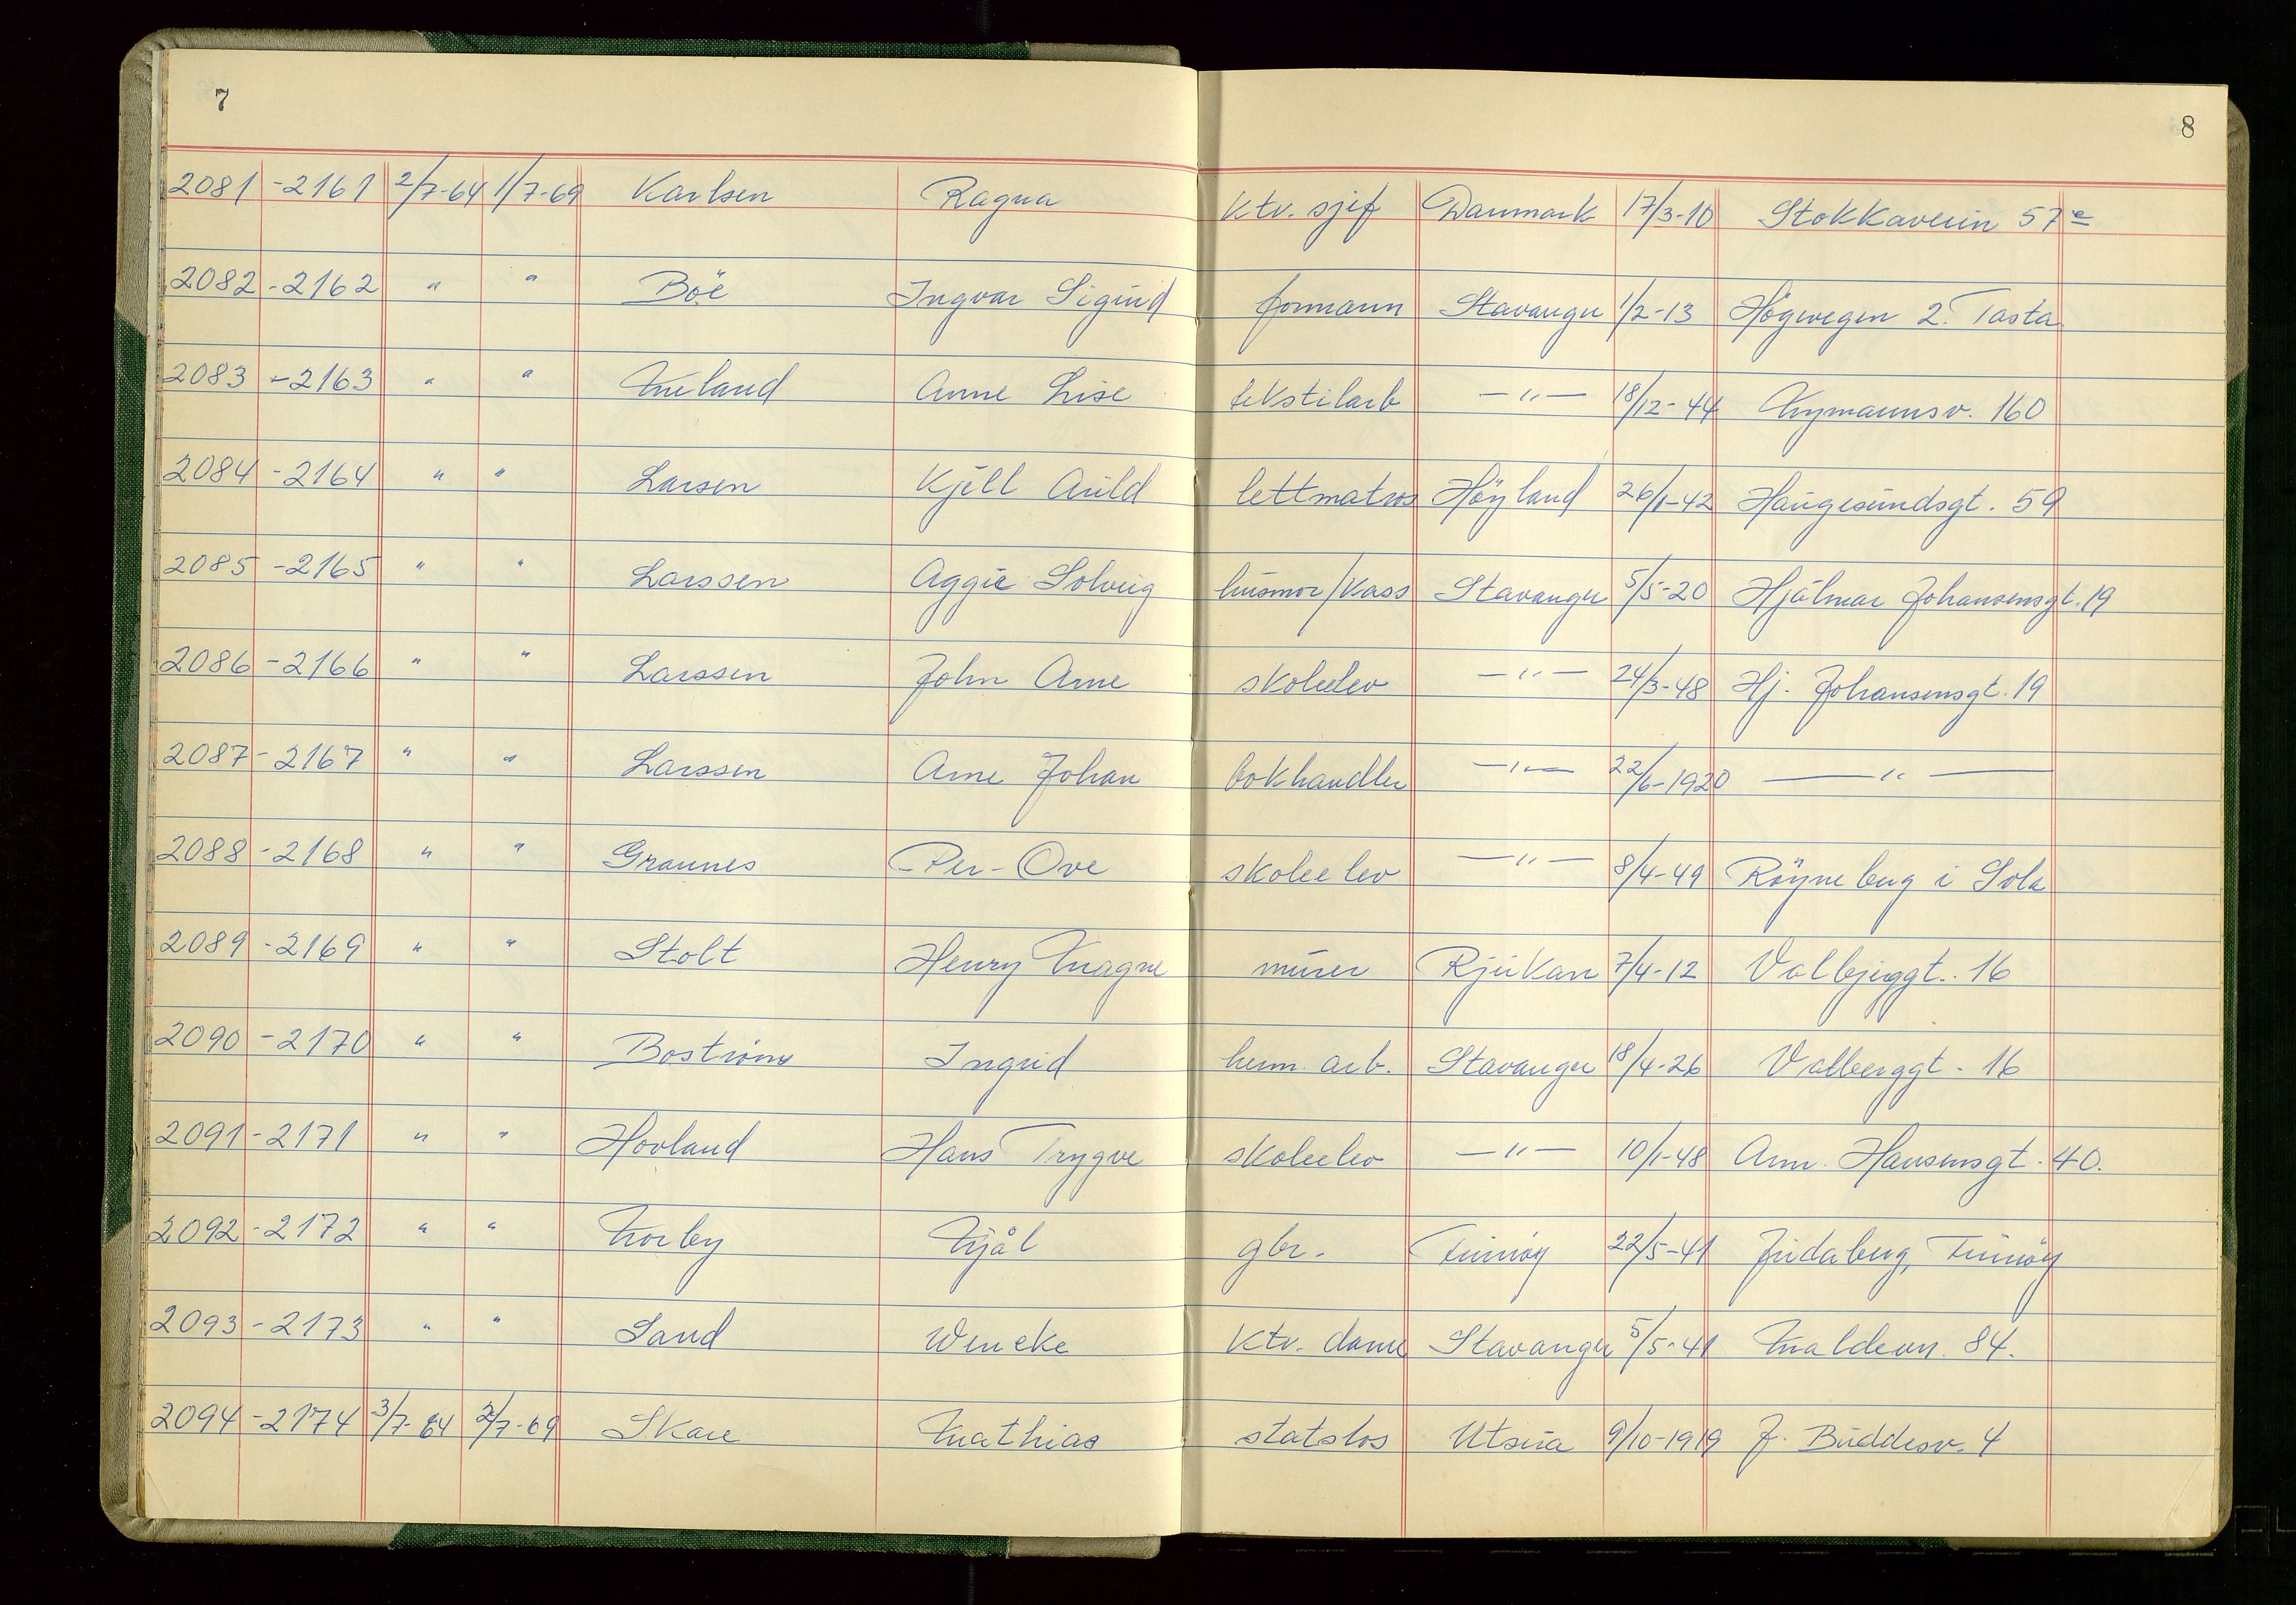 7
8
2081 -2161 2/7-64 1/7-69 Karlsen Ragna ktv. sjef Danmark 17/3-10 Stokkaveien 57 e
2082 -2162 " " Böe Ingvar Sigurd formann Stavanger 1/2-13 Högevegen 2. Tasta.
2083 -2163 " " Meland Anne Lise tekstilarb —"— 18/12-44 Nymannsv. 160
2084 -2164 " " Larsen Kjell Arild lettmatros Höyland 26/1-42 Haugesundsgt. 59
2085 -2165 " " Larssen Aggie Solveig husmor/kass Stavanger 5/5-20 Hjalmar Johansensgt. 19
2086 -2166 " " Larssen John Arne skoleelev —"— 24/3-48 Hj. Johansensgt. 19
2087 -2167 " " Larssen Arne Johan bokhandler —"— 22/6-1920 —"—
2088 -2168 " " Grannes Per-Ove skoleelev —"— 8/4-49 Röyneberg i Sola
2089 -2169 " " Stolt Henry Magne murer Rjukan 7/4-12 Valbjerggt. 16
2090 -2170 " " Boström Ingrid herm. arb. Stavanger 18/4-26 Valberggt. 16
2091 -2171 " " Hovland Hans Trygve skoleelev —"— 10/1-48 Am. Hansensgt. 40.
2092 -2172 " " Norby Njål gbr. Finnöy 22/5-41 Judaberg, Finnöy
2093 -2173 " " Sand Wencke ktv. dame Stavanger 5/5-41 Maldevn. 84.
2094 -2174 3/7-64 2/7-69 Skare Mathias statslos Utsira 9/10-1919 J. Buddesv. 4